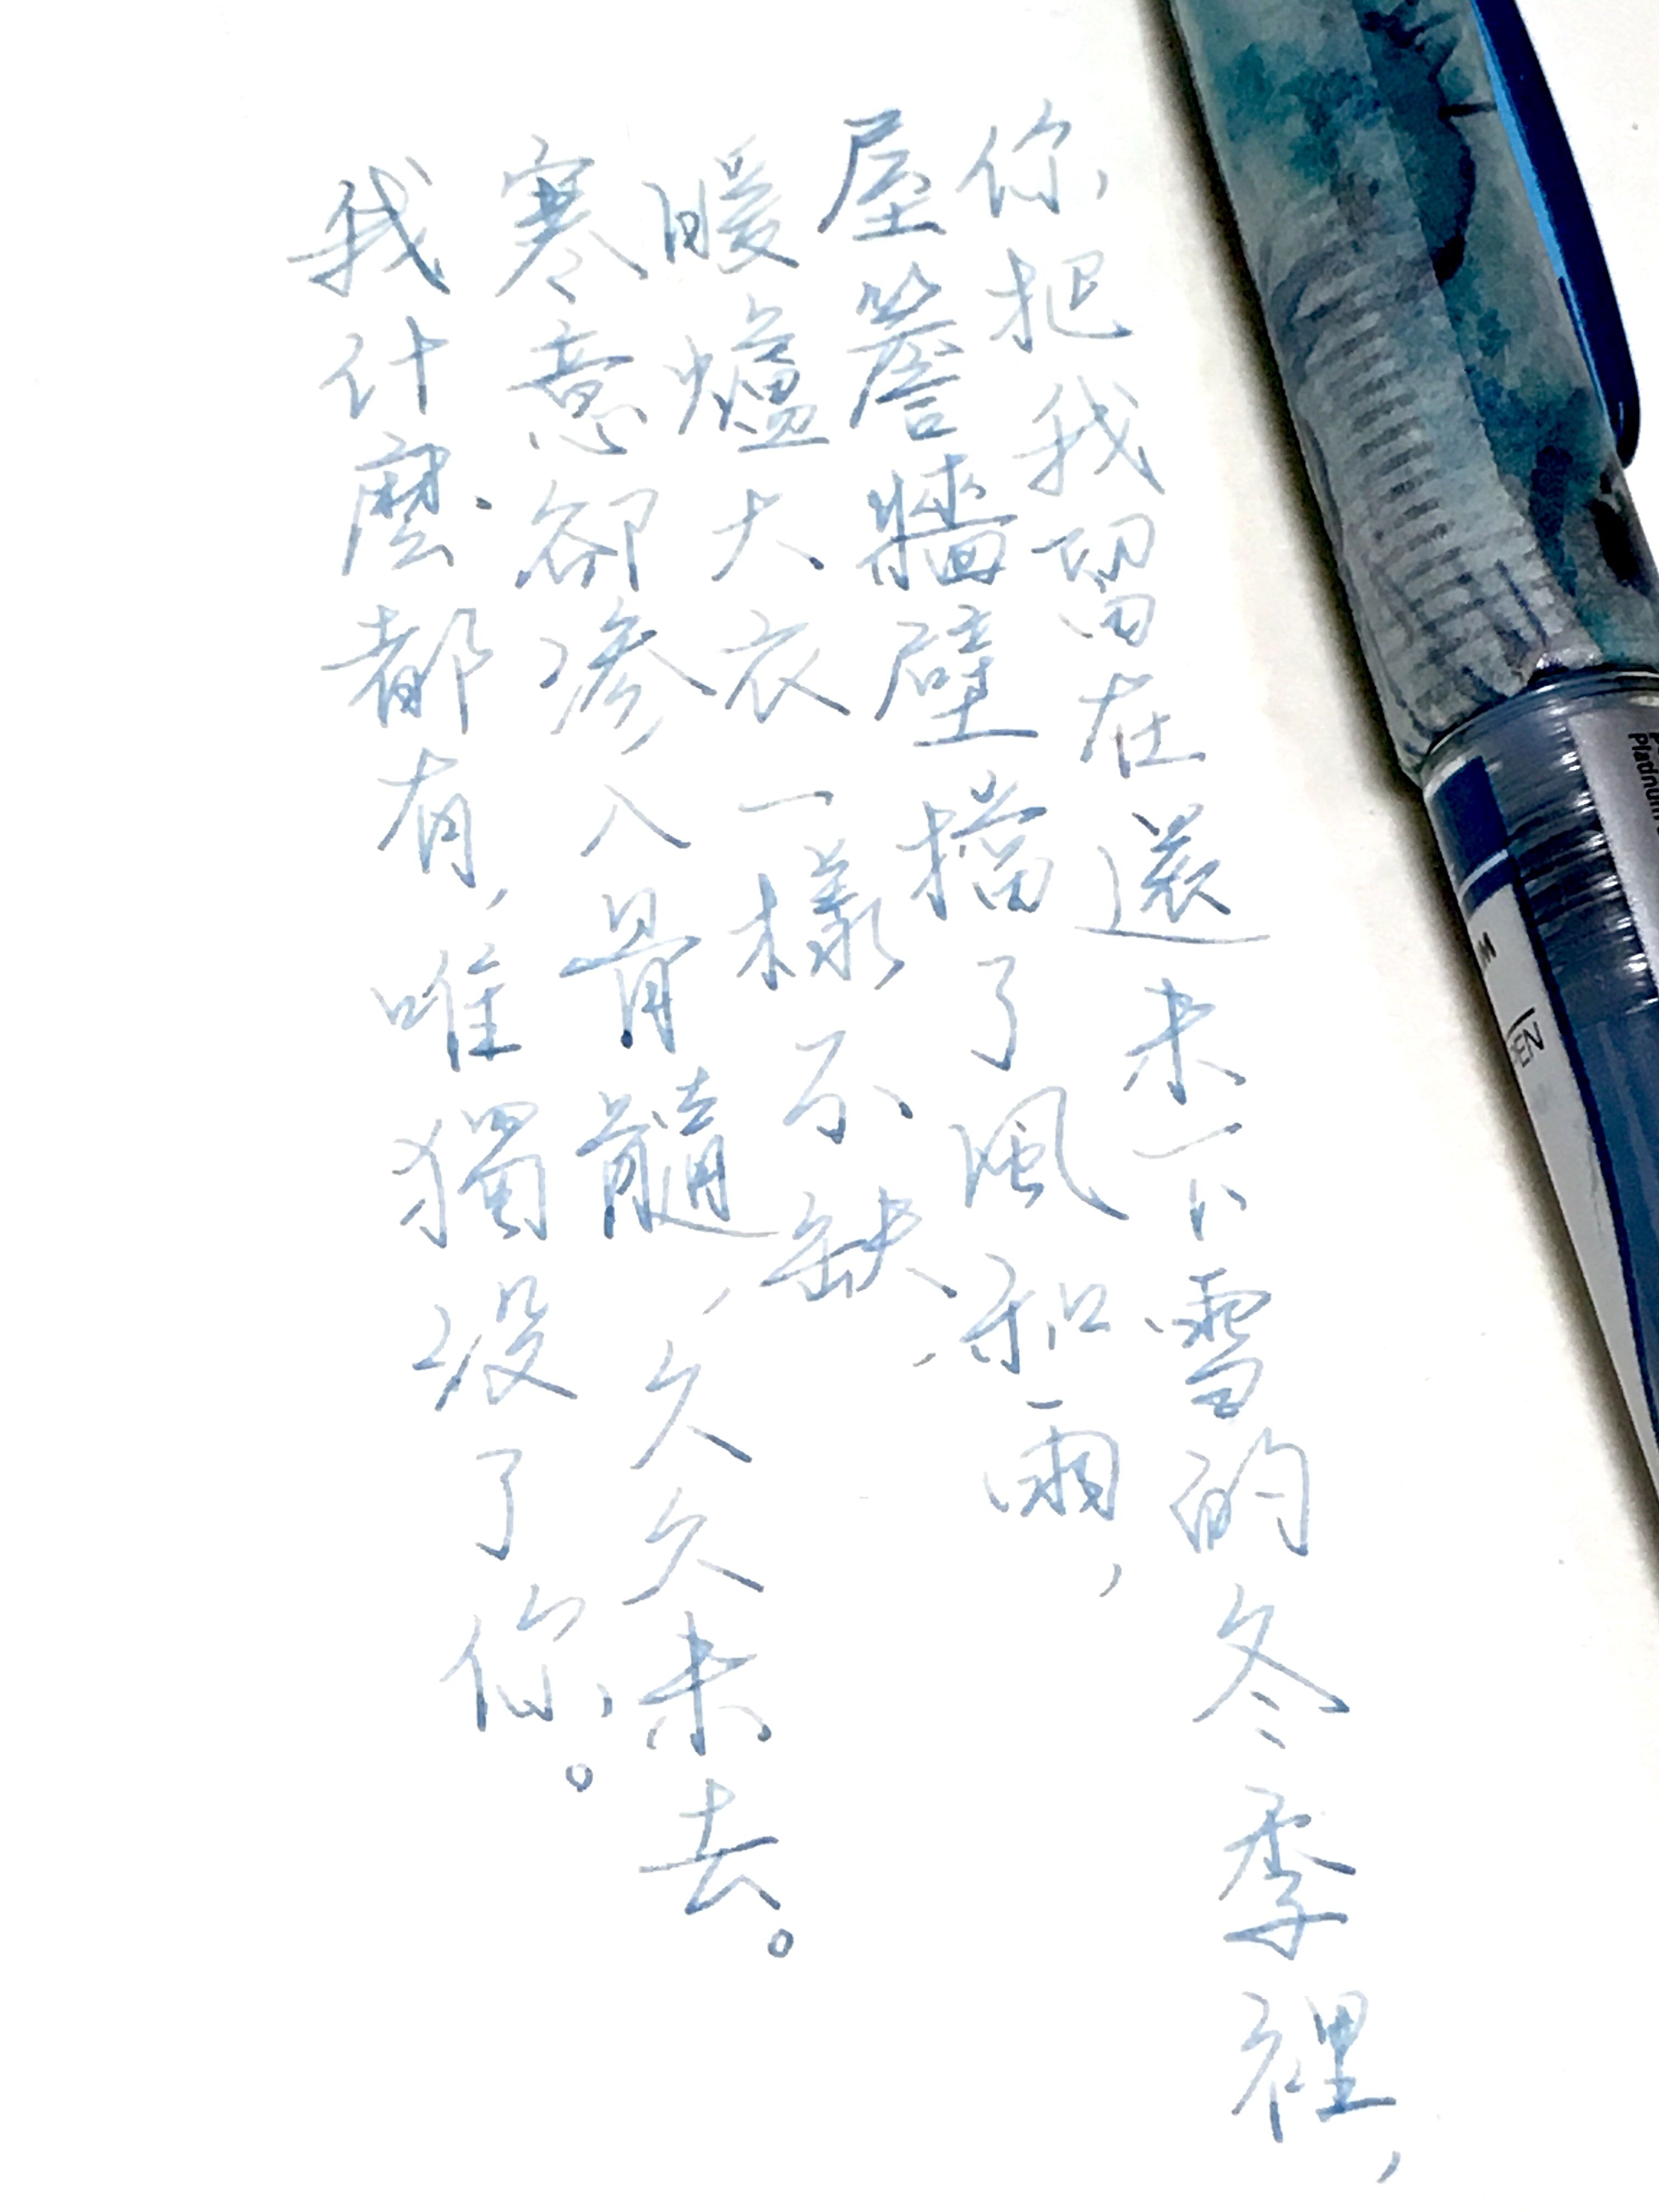 你把我留在還未下雪的冬季裡，
屋簷牆壁擋了風和雨，
暖爐大衣一樣不缺，
寒意卻滲入骨髓，久久未去。
我什麼都有，唯獨沒了你。
M
PEN